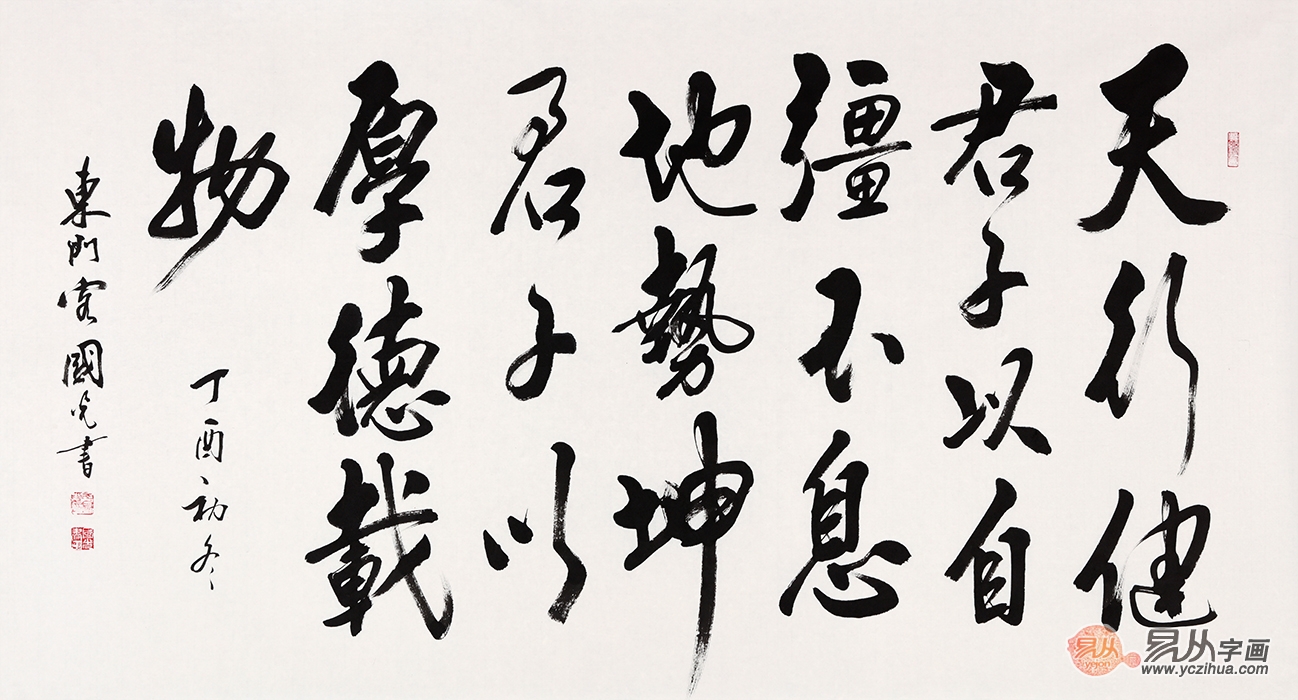 天行健
君子以自
彊不息
地勢坤
君子以
厚德載
物
丁酉初冬
東門客國光書
易从
易从字画
www.yczihua.com